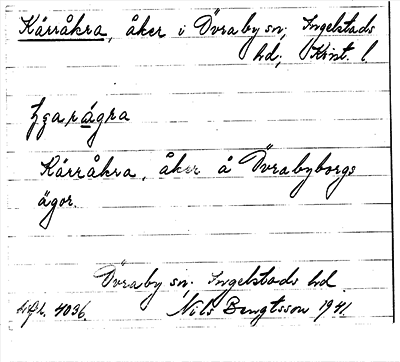 Kärråkra, åker i Övraby sn, Ingelstads
hd, Krist. l
Kärråkra, åker å Övrabyborgs
ägor.
Övraby sn, Ingelstads hd
4036. Nils Bengtsson 1941.